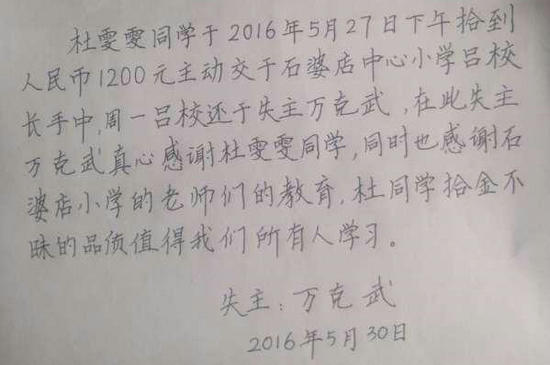 杜雯雯同学于2016年5月27日下午拾到
人民币1200元主动交于石婆店中心小学吕校
长手中,周一吕校还于失主万克武,在此失主
万克武真心感谢杜雯雯同学,同时也感谢石
婆店小学的老师们的教育,杜同学拾金不
昧的品质值得我们所有人学习。
失主:万克武
2016年5月30日